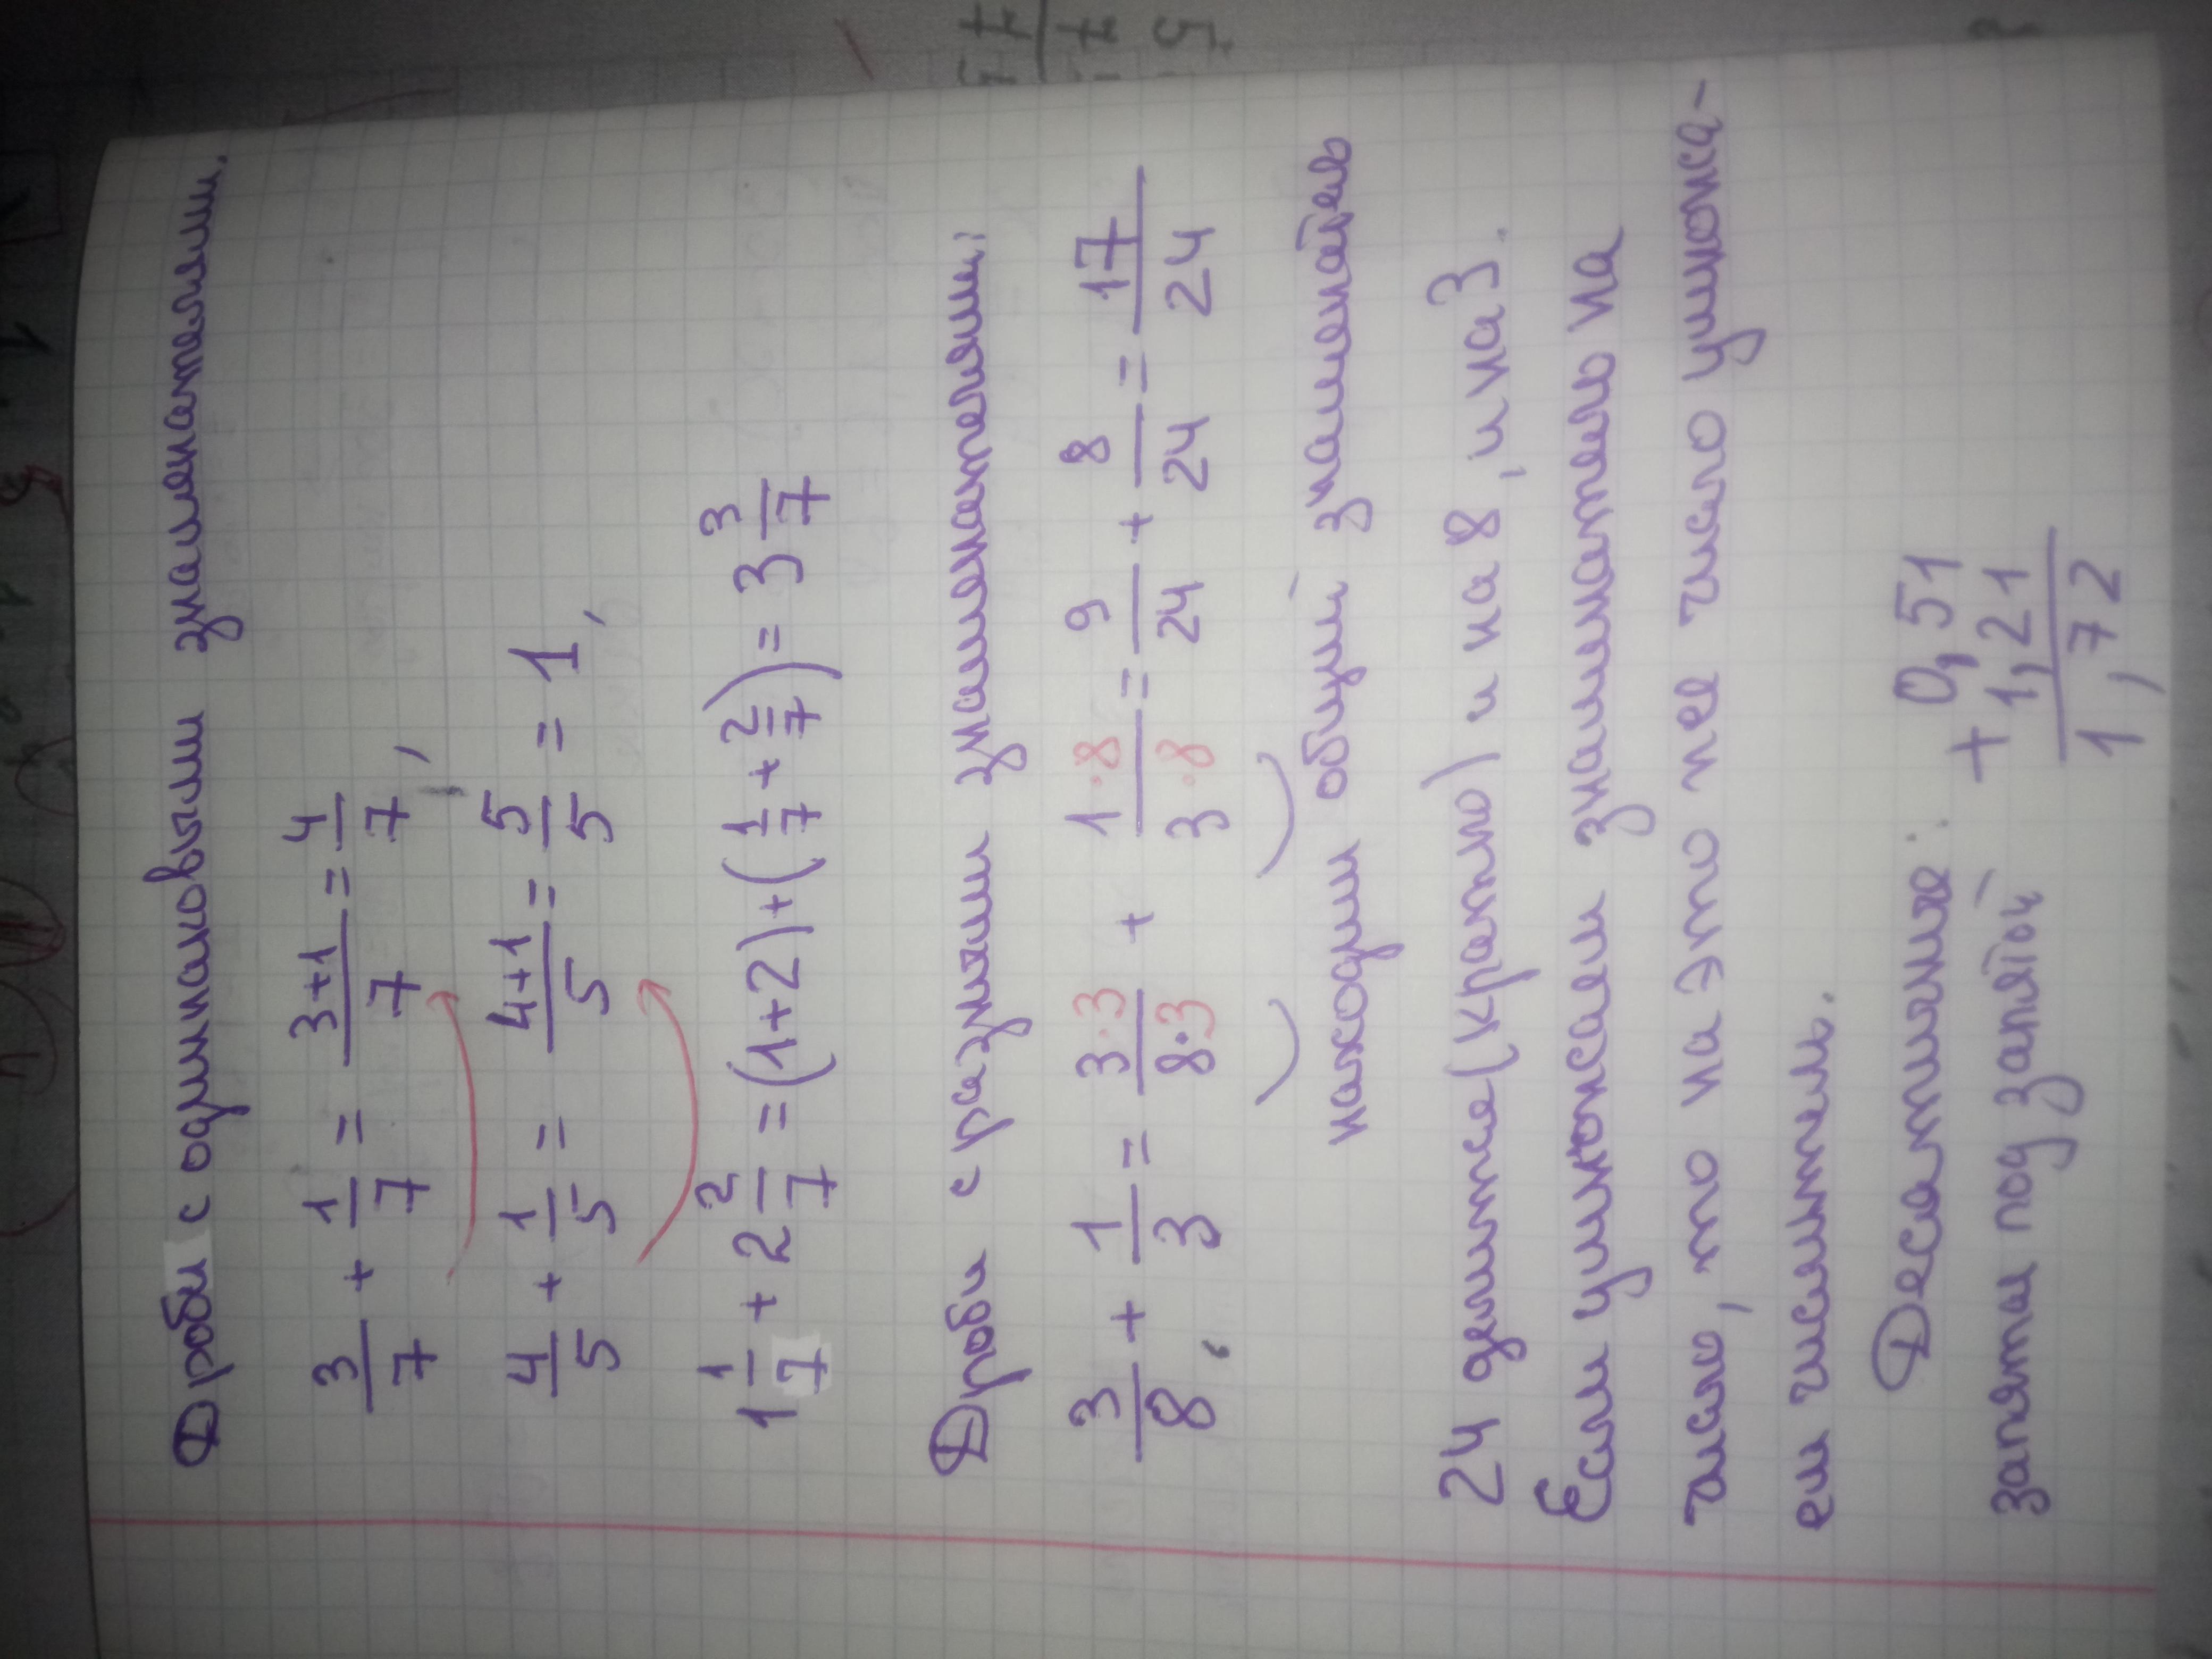 Дроби с одинаковыми знаменателями.
3/7 + 1/7 = (3+1)/7 = 4/7,
4/5 + 1/5 = (4+1)/5 = 5/5 = 1,
1 1/7 + 2 2/7 = (1+2)+(1/7 + 2/7) = 3 3/7
Дроби с разными знаменателями:
3/8 + 1/3 = (3·3)/(8·3) + (1·8)/(3·8) = 9/24 + 8/24 = 17/24
находим общий знаменатель
24 делится (кратно) и на 8, и на 3.
Если умножаем знаменатель на
число, то на это же число умножа-
ем числитель.
Десятичные: 0,51
+ 1,21
запятая под запятой 1,72